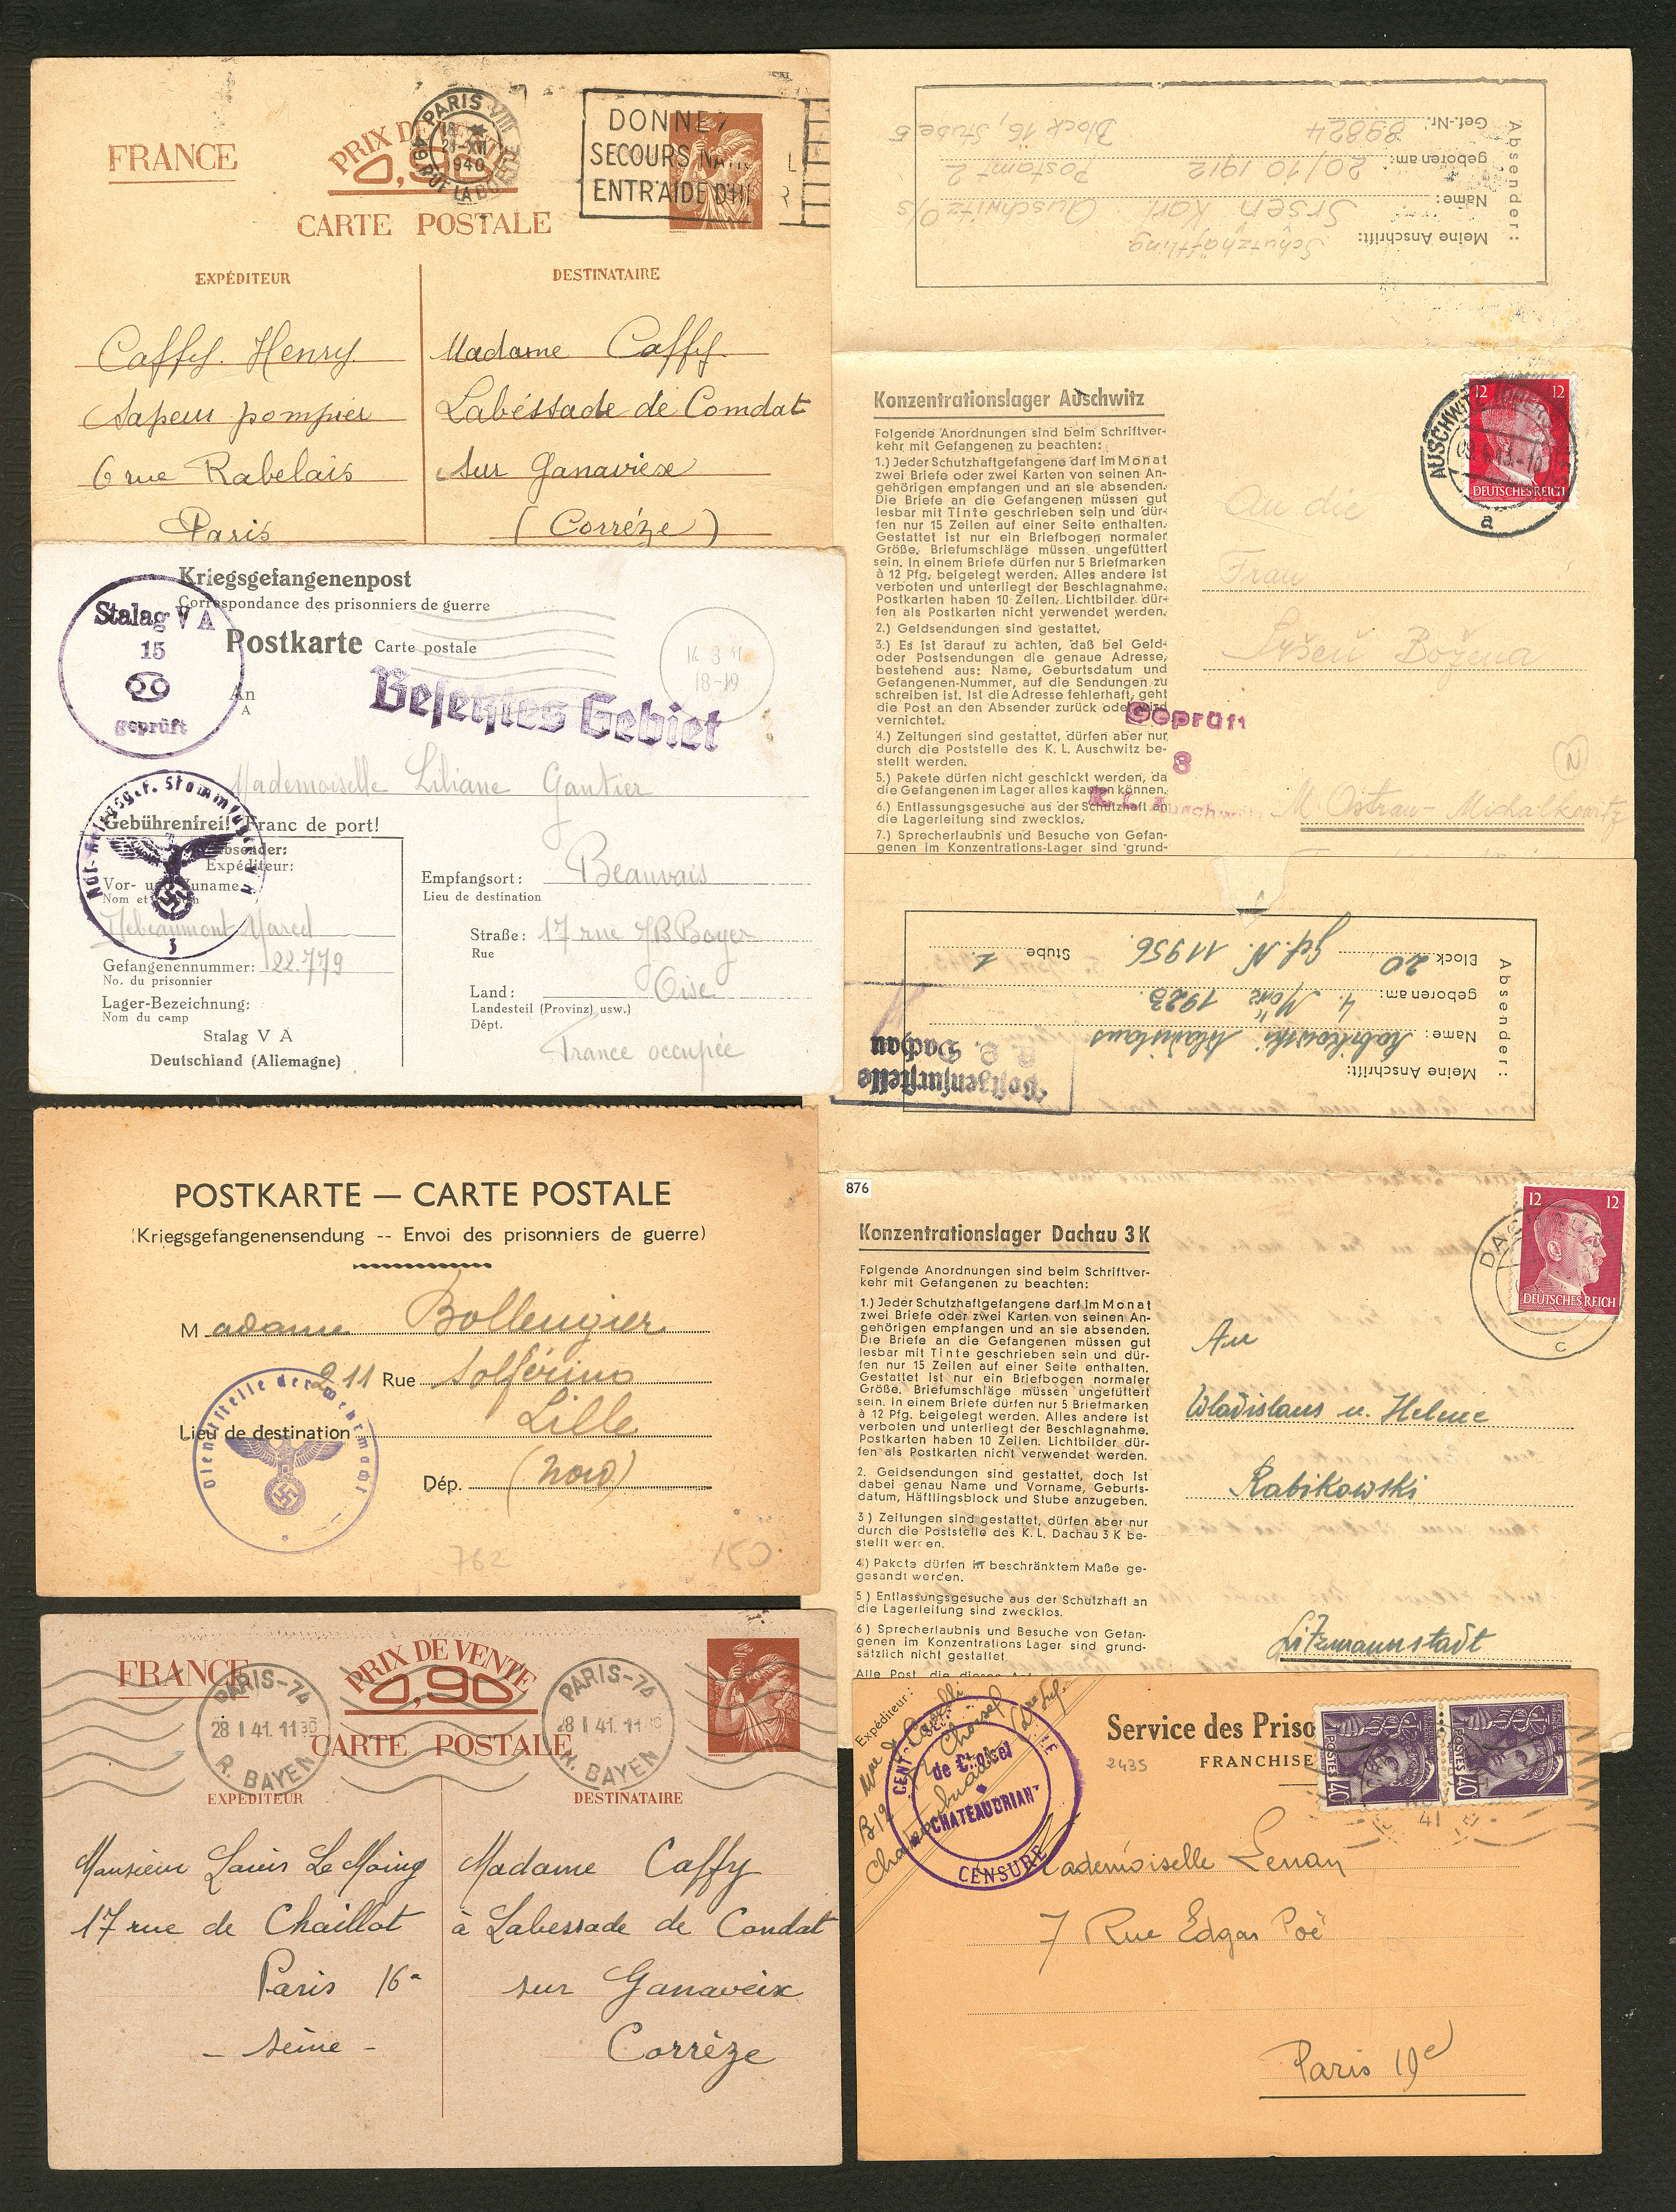 FRANCE
PRIX DE VENTE
0,90
CARTE POSTALE
PARIS VIII
18
28-XII
1940
49 RUE LA BOETIE
DONNEZ
SECOURS
ENTR'AIDE D'HI R
EXPÉDITEUR
DESTINATAIRE
Caffy. Henry.
Sapeur pompier
6 rue Rabelais
Paris
Madame Caffy.
Labéssade de Comdat
sur Ganaviexe
(Corréze)
Kriegsgefangenenpost
Correspondance des prisonniers de guerre
Postkarte Carte postale
Stalag V A
15
geprüft
An
A
Besetztes Gebiet
18-19
Mademoiselle Liliane Gautier
Gebührenfrei! Franc de port!
Absender:
Expéditeur:
Vor- und Zuname
Nom et
Marcel
Gefangenennummer: 22.779
No. du prisonnier
Lager-Bezeichnung:
Nom du camp
Stalag V A
Deutschland (Allemagne)
Empfangsort: Beauvais
Lieu de destination
Straße: 17 rue JB Boyer
Rue
Land: Oise
Landesteil (Provinz) usw.)
Dépt.
France occupée
POSTKARTE — CARTE POSTALE
(Kriegsgefangenensendung -- Envoi des prisonniers de guerre)
Madame Bollengier
211 Rue Solférino
Lieu de destination Lille
Dép. (Nord)
Dienststelle der Wehrmacht
762
150
FRANCE
PRIX DE VENTE
0,90
CARTE POSTALE
PARIS-74
28 I 41. 11 30
R. BAYEN
PARIS-74
28 I 41. 11 30
R. BAYEN
EXPÉDITEUR
DESTINATAIRE
Monsieur Louis Le Moing
17 rue de Chaillot
Paris 16e
- Seine -
Madame Caffy
à Labessade de Condat
sur Ganaveix
Corrèze
Absender:
Meine Anschrift: Schutzhäftling
Name: Srsen Karl Auschwitz O/S
geboren am: 20/10 1912 Postamt 2
Gef.-Nr. 89824 Block 16, Stube 5
Konzentrationslager Auschwitz
Folgende Anordnungen sind beim Schriftver-
kehr mit Gefangenen zu beachten:
1.) Jeder Schutzhaftgefangene darf im Monat
zwei Briefe oder zwei Karten von seinen An-
gehörigen empfangen und an sie absenden.
Die Briefe an die Gefangenen müssen gut
lesbar mit Tinte geschrieben sein und dür-
fen nur 15 Zeilen auf einer Seite enthalten.
Gestattet ist nur ein Briefbogen normaler
Größe. Briefumschläge müssen ungefüttert
sein. In einem Briefe dürfen nur 5 Briefmarken
à 12 Pfg. beigelegt werden. Alles andere ist
verboten und unterliegt der Beschlagnahme.
Postkarten haben 10 Zeilen. Lichtbilder dür-
fen als Postkarten nicht verwendet werden.
2.) Geldsendungen sind gestattet.
3.) Es ist darauf zu achten, daß bei Geld-
oder Postsendungen die genaue Adresse,
bestehend aus: Name, Geburtsdatum und
Gefangenen-Nummer, auf die Sendungen zu
schreiben ist. Ist die Adresse fehlerhaft, geht
die Post an den Absender zurück oder wird
vernichtet.
4.) Zeitungen sind gestattet, dürfen aber nur
durch die Poststelle des K. L. Auschwitz be-
stellt werden.
5.) Pakete dürfen nicht geschickt werden, da
die Gefangenen im Lager alles kaufen können.
6.) Entlassungsgesuche aus der Schutzhaft an
die Lagerleitung sind zwecklos.
7.) Sprecherlaubnis und Besuche von Gefan-
genen im Konzentrations-Lager sind grund-
12 12
DEUTSCHES REICH
AUSCHWITZ
a
An die
Frau
Sršeň Božena
M. Ostrau - Michalkowitz
Geprüft
8
K. L. Auschwitz
N
Absender:
Meine Anschrift:
Name: Rabikowski Wladislaus
geboren am: 4. März 1923.
Block 20 gef. N. 11956. Stube 1.
Postzensurstelle
K. L. Dachau
876
Konzentrationslager Dachau 3 K
Folgende Anordnungen sind beim Schriftver-
kehr mit Gefangenen zu beachten:
1.) Jeder Schutzhaftgefangene darf im Monat
zwei Briefe oder zwei Karten von seinen An-
gehörigen empfangen und an sie absenden.
Die Briefe an die Gefangenen müssen gut
lesbar mit Tinte geschrieben sein und dür-
fen nur 15 Zeilen auf einer Seite enthalten.
Gestattet ist nur ein Briefbogen normaler
Größe. Briefumschläge müssen ungefüttert
sein. In einem Briefe dürfen nur 5 Briefmarken
à 12 Pfg. beigelegt werden. Alles andere ist
verboten und unterliegt der Beschlagnahme.
Postkarten haben 10 Zeilen. Lichtbilder dür-
fen als Postkarten nicht verwendet werden.
2. Geldsendungen sind gestattet, doch ist
dabei genau Name und Vorname, Geburts-
datum, Häftlingsblock und Stube anzugeben.
3) Zeitungen sind gestattet, dürfen aber nur
durch die Poststelle des K. L. Dachau 3 K be-
stellt werden.
4) Pakete dürfen in beschränktem Maße ge-
gesandt werden.
5) Entlassungsgesuche aus der Schutzhaft an
die Lagerleitung sind zwecklos.
6) Sprecherlaubnis und Besuche von Gefan-
genen im Konzentrations Lager sind grund-
sätzlich nicht gestattet
Alle Post, die diesen
12 12
DEUTSCHES REICH
c
An
Wladislaus u. Helene
Rabikowski
Litzmannstadt
Expéditeur:
B12
de Choisel
CHATEAUBRIANT
CENSURE
Service des Priso
FRANCHISE
2435
POSTES 40c
POSTES 40c
41
Mademoiselle Lenay
7 Rue Edgar Poë
Paris 19e